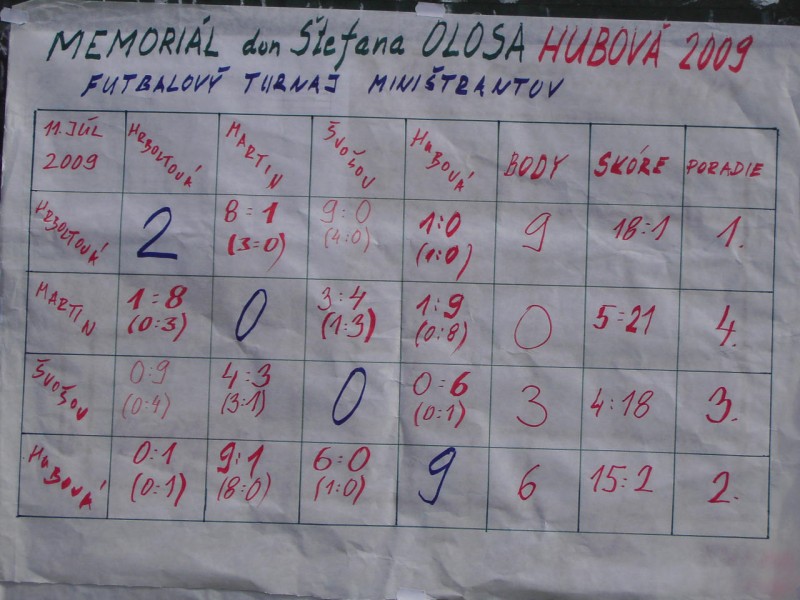 MEMORIÁL don Štefana OLOSA HUBOVÁ 2009
FUTBALOVÝ TURNAJ MINIŠTRANTOV
11. JÚL 2009 HRBOLTOVÁ MARTIN ŠVOŠOV HUBOVÁ BODY SKÓRE PORADIE
HRBOLTOVÁ 2 8:1 (3:0) 9:0 (4:0) 1:0 (1:0) 9 18:1 1.
MARTIN 1:8 (0:3) 0 3:4 (1:3) 1:9 (0:8) 0 5:21 4.
ŠVOŠOV 0:9 (0:4) 4:3 (3:1) 0 0:6 (0:1) 3 4:18 3.
HUBOVÁ 0:1 (0:1) 9:1 (8:0) 6:0 (1:0) 9 6 15:2 2.